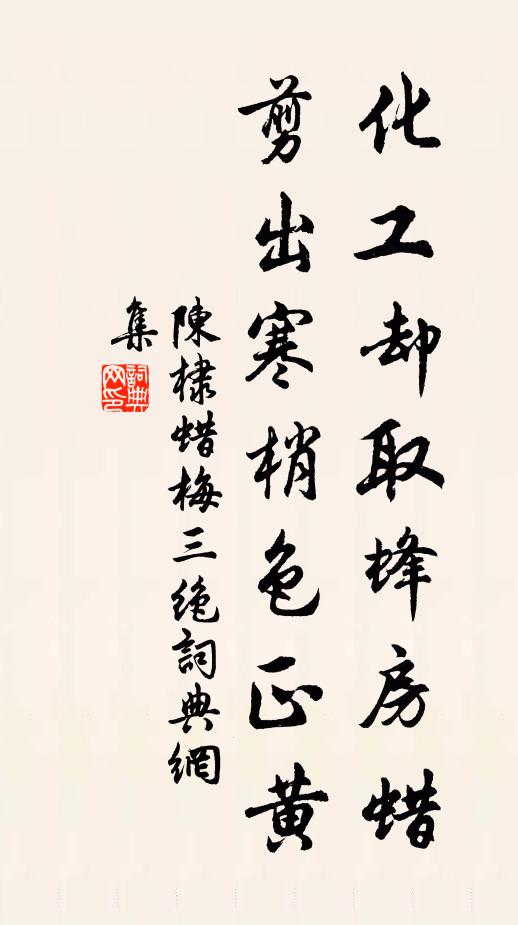 化工却取蜂房蜡
剪出寒梢色正黄
陳棣蜡梅三绝詞典網
集
詞典网印